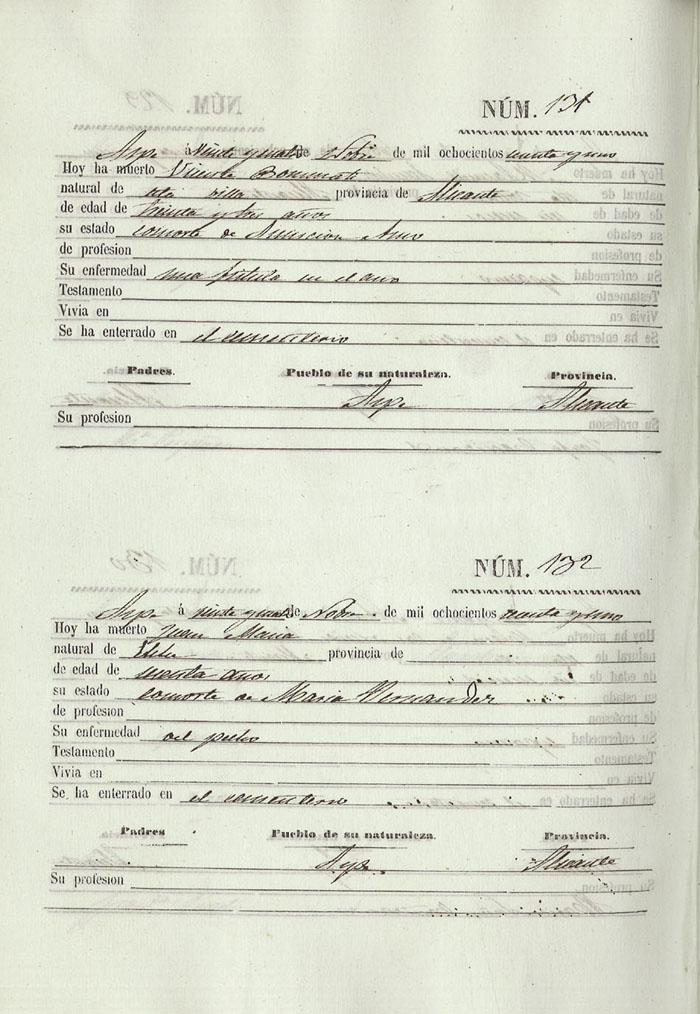 NÚM. 131
Aspe á veinte y cuatro de Nobre de mil ochocientos
Hoy ha muerto Vicenta Bonmati
natural de esta villa provincia de Alicante
de edad de treinta y tres años
su estado consorte de Asuncion
de profesion
Su enfermedad una fistula en el ano
Testamento
Vivia en
Se ha enterrado en el cementerio
Padres. Pueblo de su naturaleza. Provincia.
Aspe Alicante
Su profesion
NÚM. 132
Aspe á veinte y cuatro de Nobre de mil ochocientos
Hoy ha muerto Juan Maria
natural de Elche provincia de
de edad de años
su estado consorte de Maria Hernandez
de profesion
Su enfermedad del pecho
Testamento
Vivia en
Se ha enterrado en el cementerio
Padres Pueblo de su naturaleza. Provincia.
Aspe Alicante
Su profesion